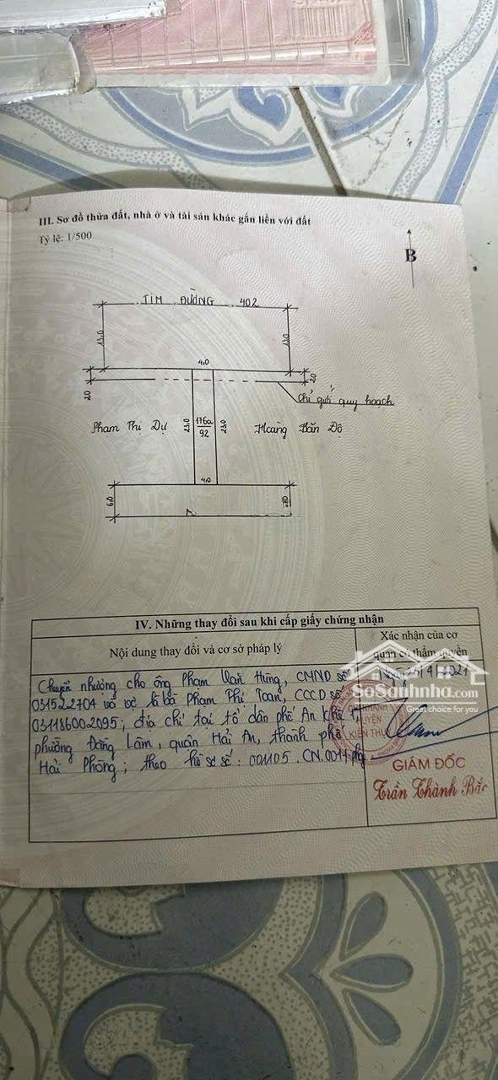 III. Sơ đồ thửa đất, nhà ở và tài sản khác gắn liền với đất
Tỷ lệ: 1/500
B
TIM ĐƯỜNG 402
13,0
13,0
4,0
20
20
Chỉ giới quy hoạch
Phạm Thị Dự
23,0
176a
92
23,0
Hoàng Văn Độ
4,0
6,0
IV. Những thay đổi sau khi cấp giấy chứng nhận
Nội dung thay đổi và cơ sở pháp lý
Xác nhận của cơ
quan có thẩm quyền
Chuyển nhượng cho ông Phạm Văn Hưng, CMND số
031522704 và vợ là bà Phạm Thị Toan, CCCD số
031186002095, địa chỉ tại tổ dân phố An Khê 1,
phường Đằng Lâm, quận Hải An, thành phố
Hải Phòng; theo hồ sơ số: 001105. CN.0014
SoSanhnha.com
Great choice for you
GIÁM ĐỐC
Trần Thành Bắc